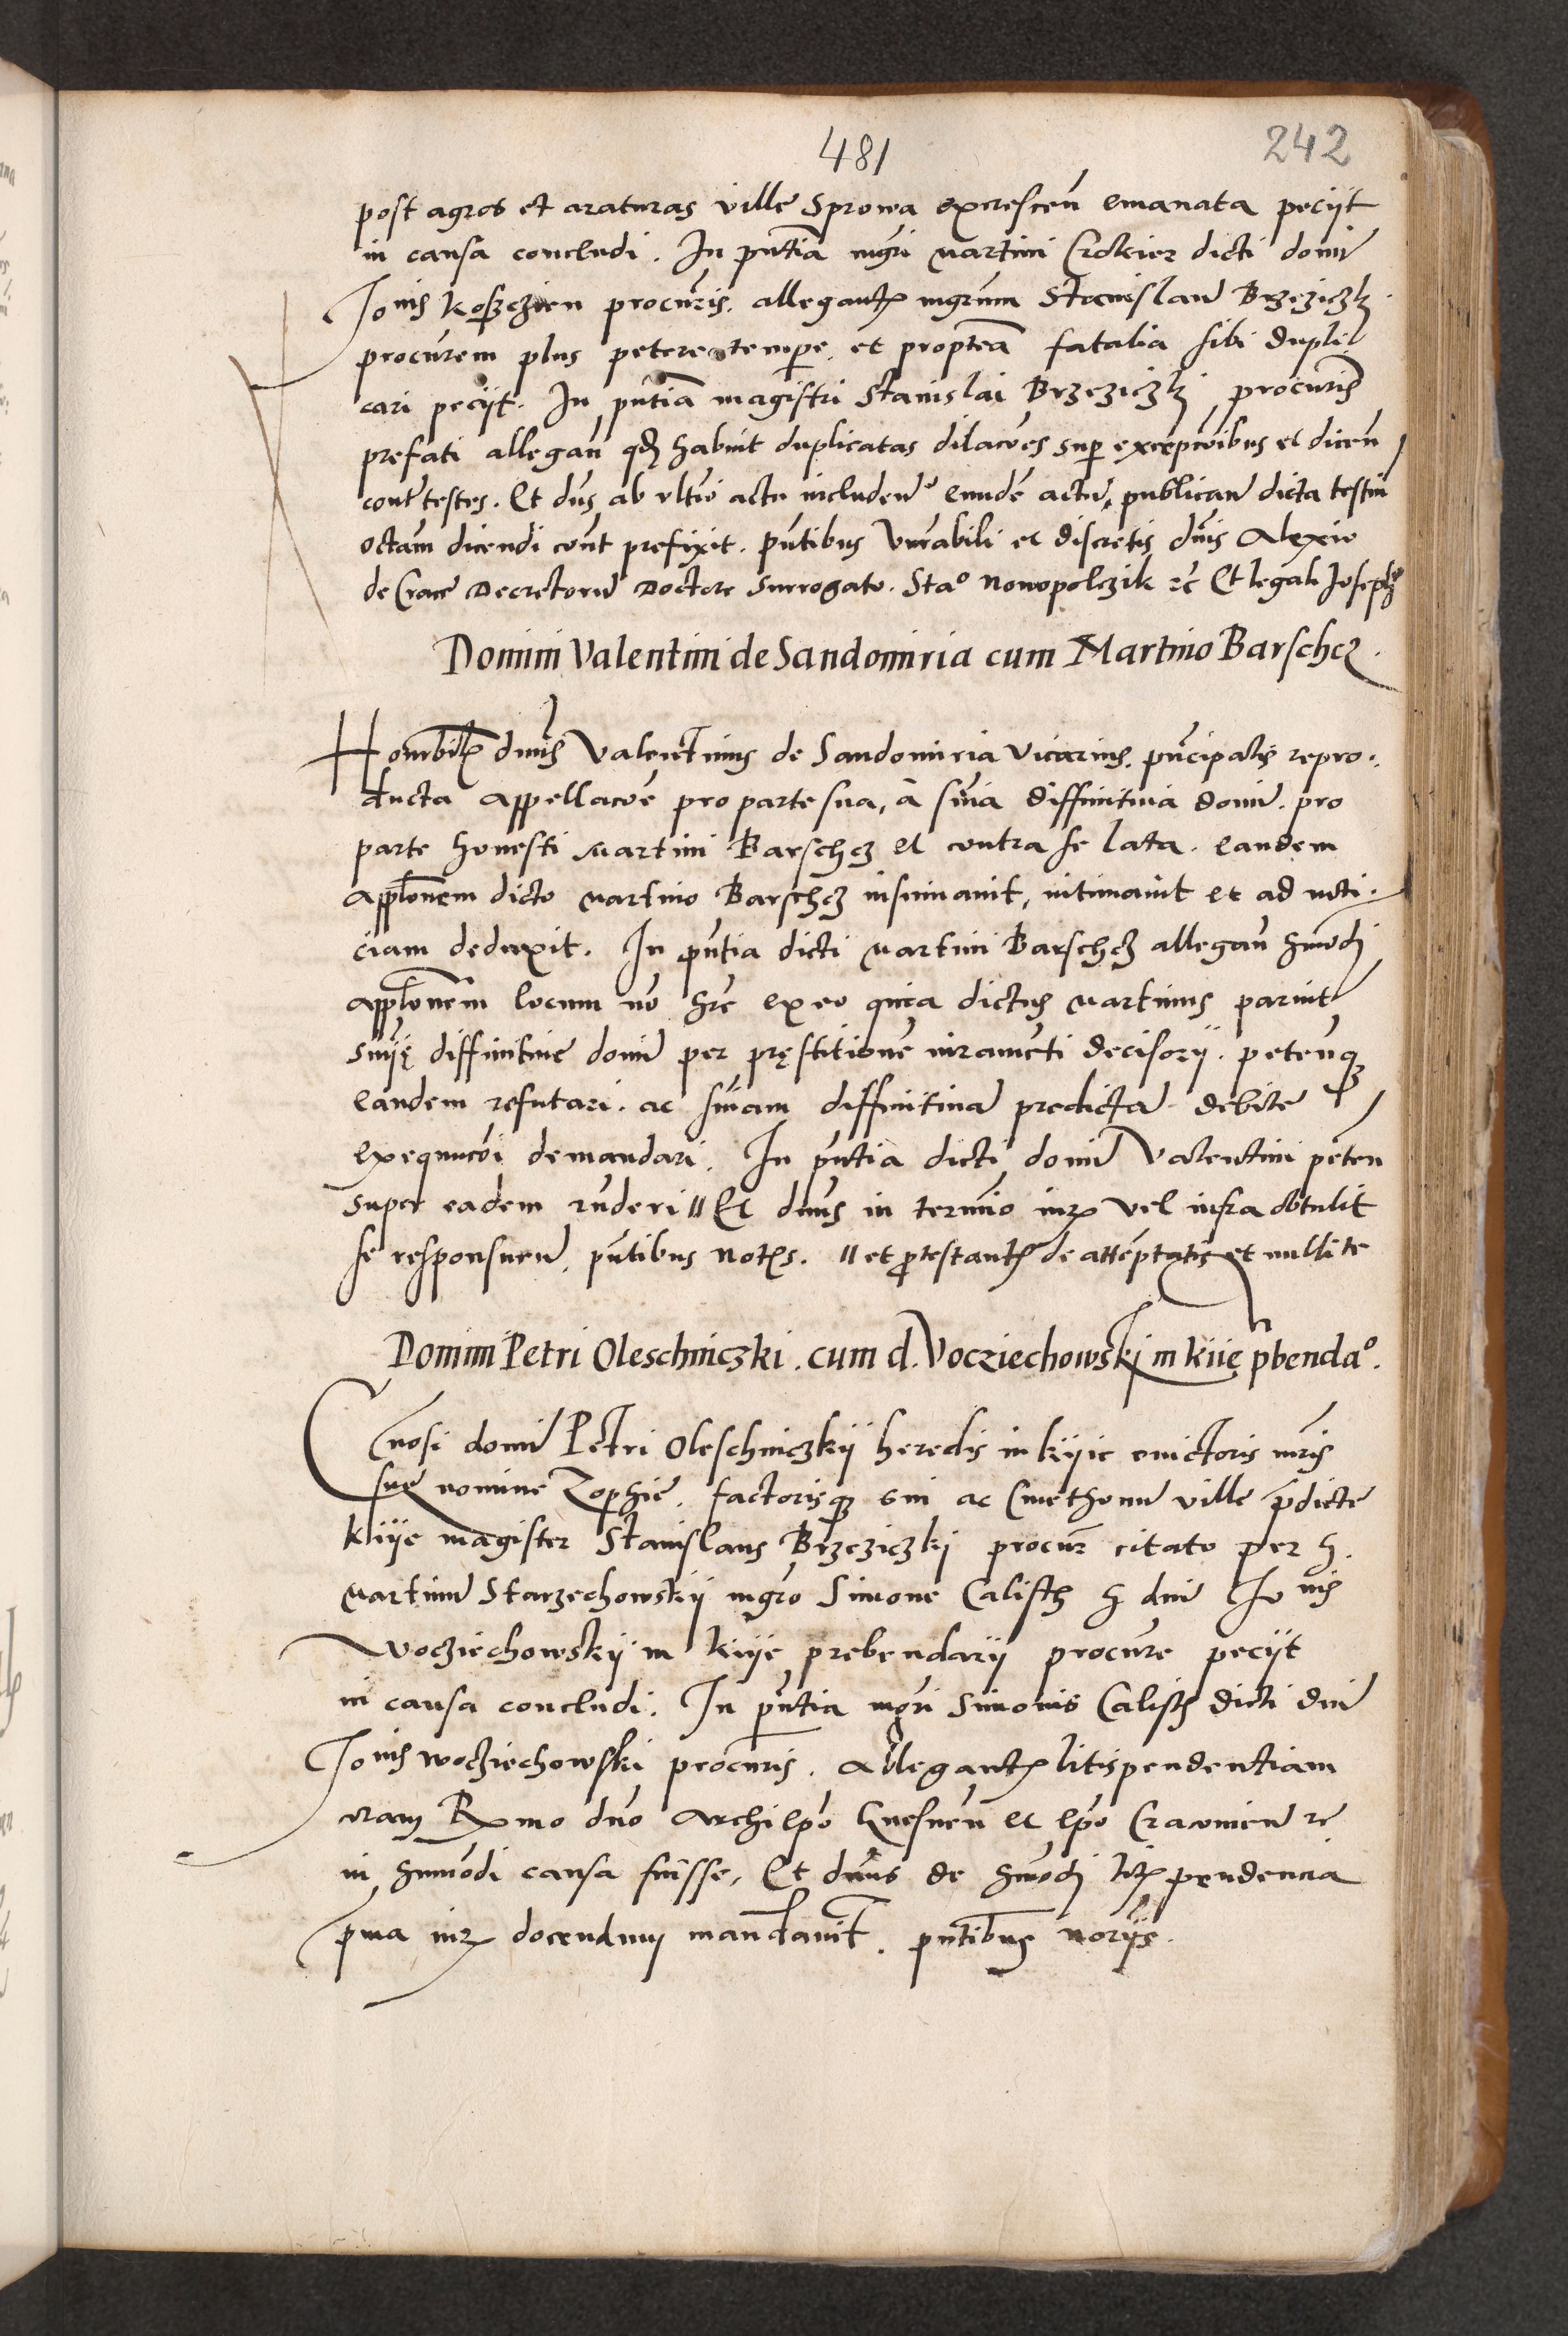 481
242
post agros et araturas ville Sprowa excrescen̄ emanata peciit
in causa concludi. In pn̄tia mgr̄i Martini dicti domi
Jonis procur̄is. allegantis mgr̄um Stanislau Brzeziczkj
procur̄em plus petere tempe et proptea fatalia sibi dupli
cari peciit. In pn̄tia magistri Stanislai Brzeziczkj procur̄is
prefati allegan̄ qd habuit duplicatas dilacōes sup excepcōibus et dicen̄
cont testes. Et dn̄s ab vltīo actu includen̄ eundē actū publican dicta testiū
octam dicendi cont prefixit. pn̄tibus Vn̄rabili et discretis dn̄is Alexio
de Crac Decretorū Doctore Surrogato. Stao Nowopolczik etc̄ Et legali Joseph
Domini Valentini de Sandomiria cum Martino Barschcz.
Honorabilis dn̄us Valentinus de Sandomiria Vicarius. prīcipalis repro.
ducta appellacōe pro parte sua, a sn̄ia diffinitiua domi. pro
parte honesti Martini Barschcz et contra se lata. eandem
applōnem dicto Martino Barschcz insinuauit, intimauit et ad noti
ciam deduxit. In pn̄tia dicti Martini Barschcz allegan̄ hmōdj
applōnem locum nō hr̄e ex eo quia dictus Martinus paruit
sn̄ię diffinitiue domi per pręstitionē iuramēti decisorij. petenq
eandem refutari. ac sn̄iam diffinitiuā predictā debite
exequucōi demandari. In pn̄tia dicti domi Valentini peten
super eadem rn̄deri // Et dn̄us in termio iur̄ vel infra obtulit
se responsurū. pn̄tibus Not̄is. // et protestantis de attēptatis et nullite
Domini Petri Oleschniczki. cum d. Vocziechowskj in kiię pbendao.
Gn̄osi domi Petri Oleschniczkij heredis in kijie euictoris mr̄is
sue nomine Zophie. factorisq sui ac Cmethonū ville p̄dicte
kiije magister Stanislaus Brzeziczkj procur citato per h.
Martinū Starzechowskij mgr̄o Simone Calisch h dni Jonis
Wocziechowskij in kiije prebendarij procur̄e peciit
in causa concludi. In pn̄tia mgr̄i Simonis Calisch dicti dni
Jonis Wocziechowski procur̄is. Allegantis litispendentiam
coram Rmo dn̄o Archiepō Gnesnen̄ et epō Cracouien re
in hmōdi causa fuisse. Et dn̄us de hmōdj litispendencia
pma iur̄ docendum mandauit. pn̄tibus norijs.